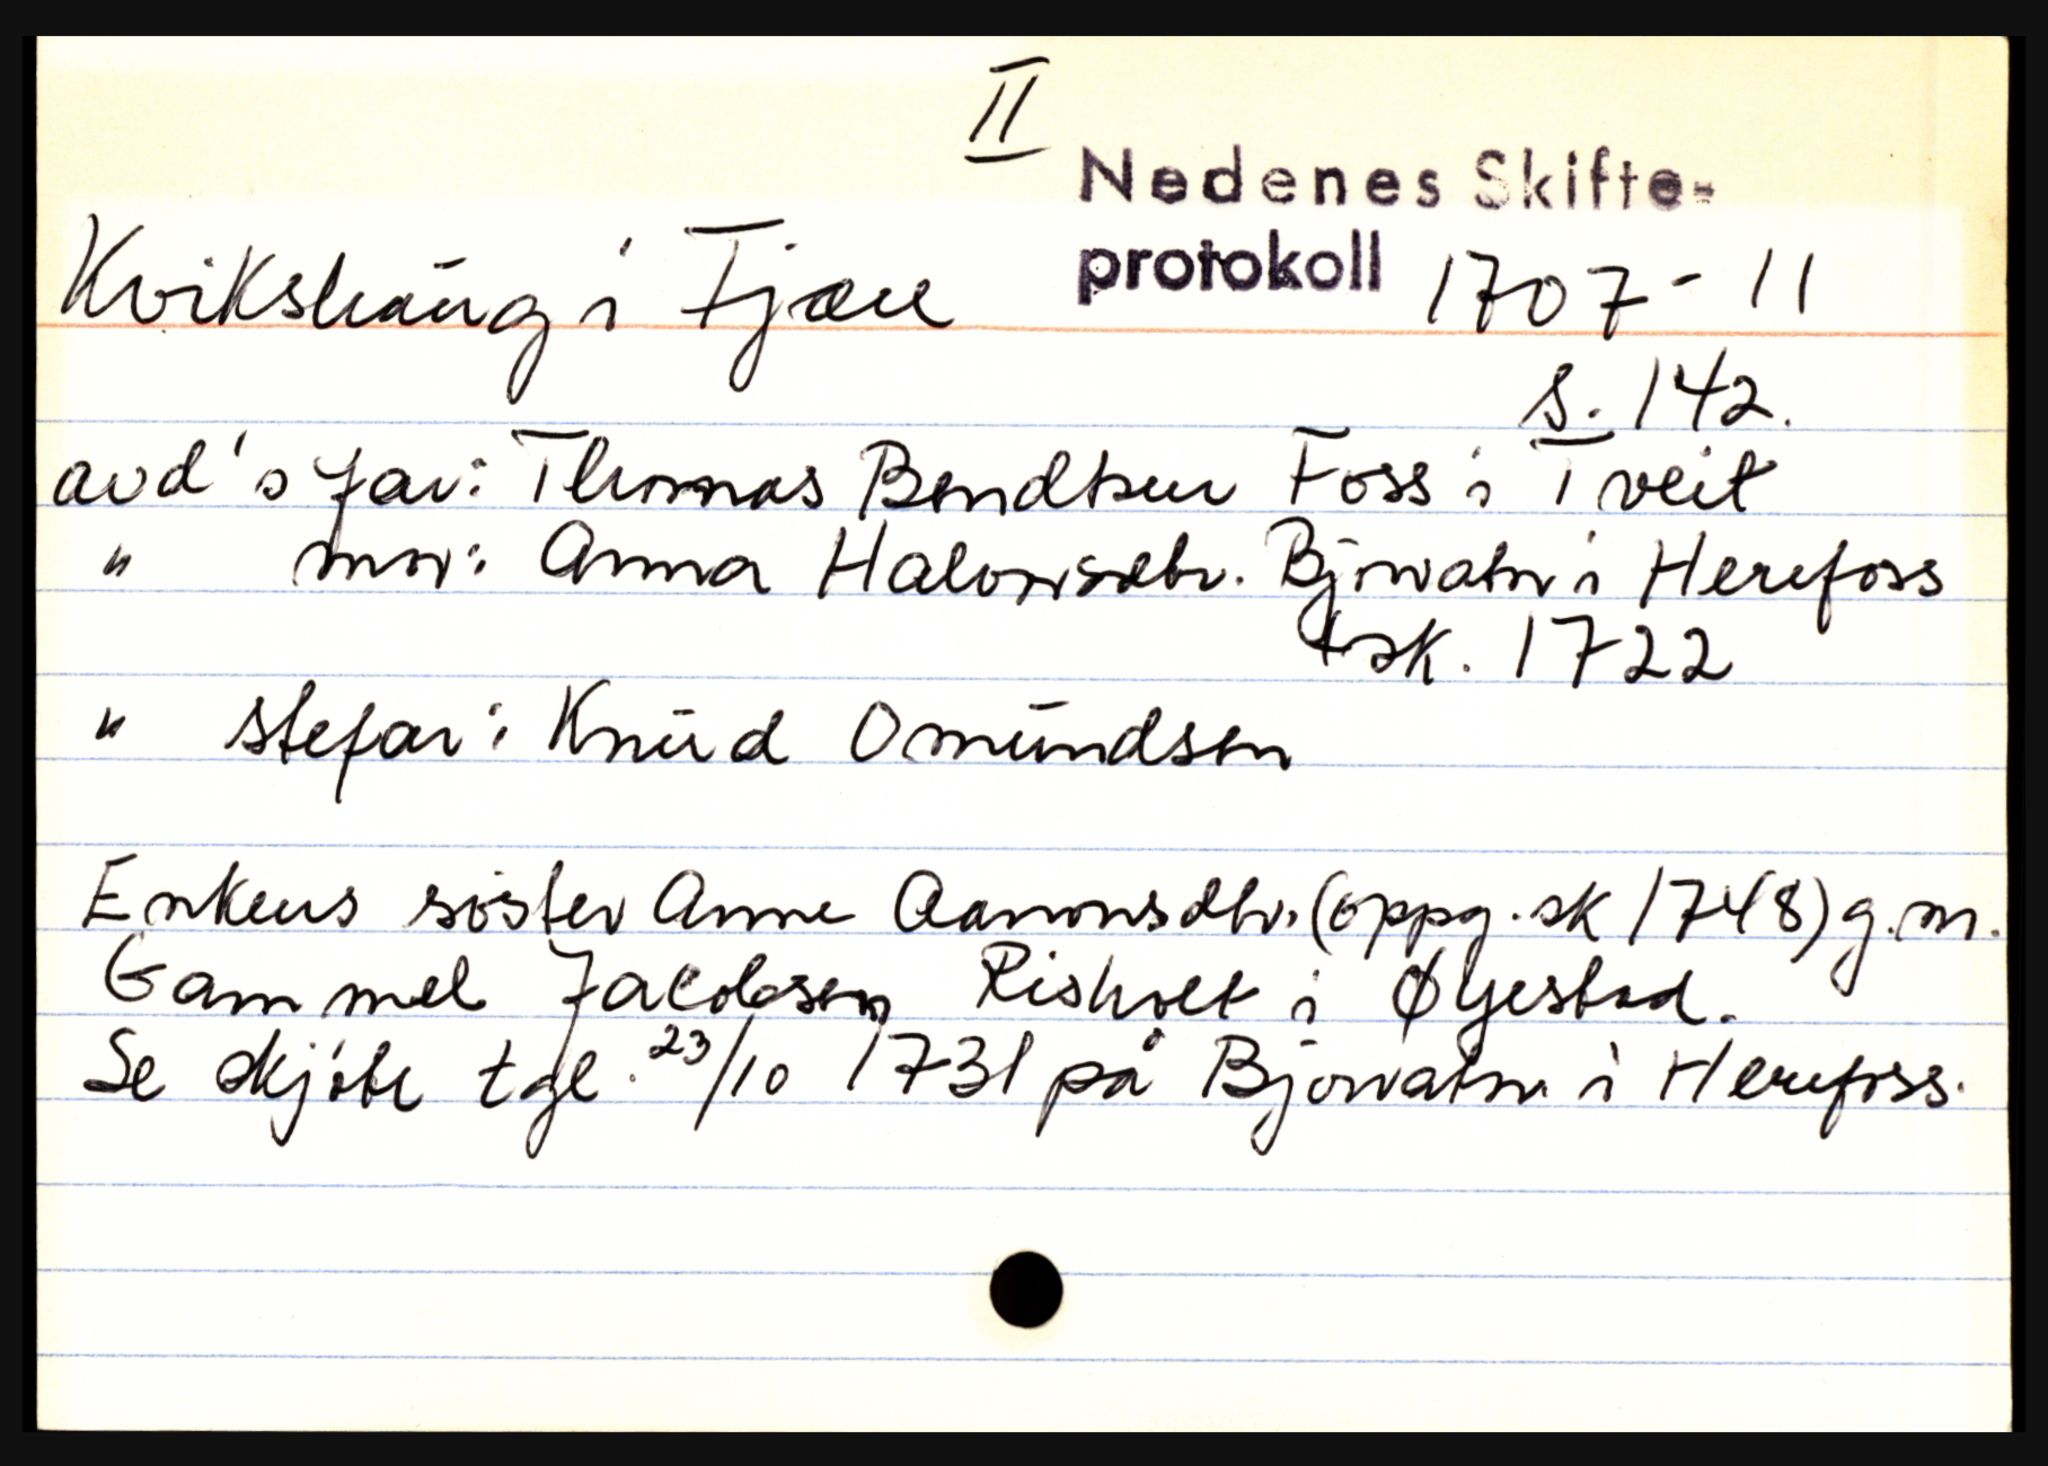 II
Nedenes Skifte-
protokoll 1707-11
Kvikshaug i Fjære
s. 142.
avd's far: Thomas Bendtsen Foss i Tveit
" mor: Anna Halvorsdtr. Bjorvatn i Herefoss
sk. 1722
" stefar: Knud Omundsen
Enkens søster Anne Aanonsdtr. (oppg. sk 1748) g.m.
Gammel Jacobsen Risholt i Øyestad.
Se skjøte tgl. 23/10 1731 på Bjorvatn i Herefoss.